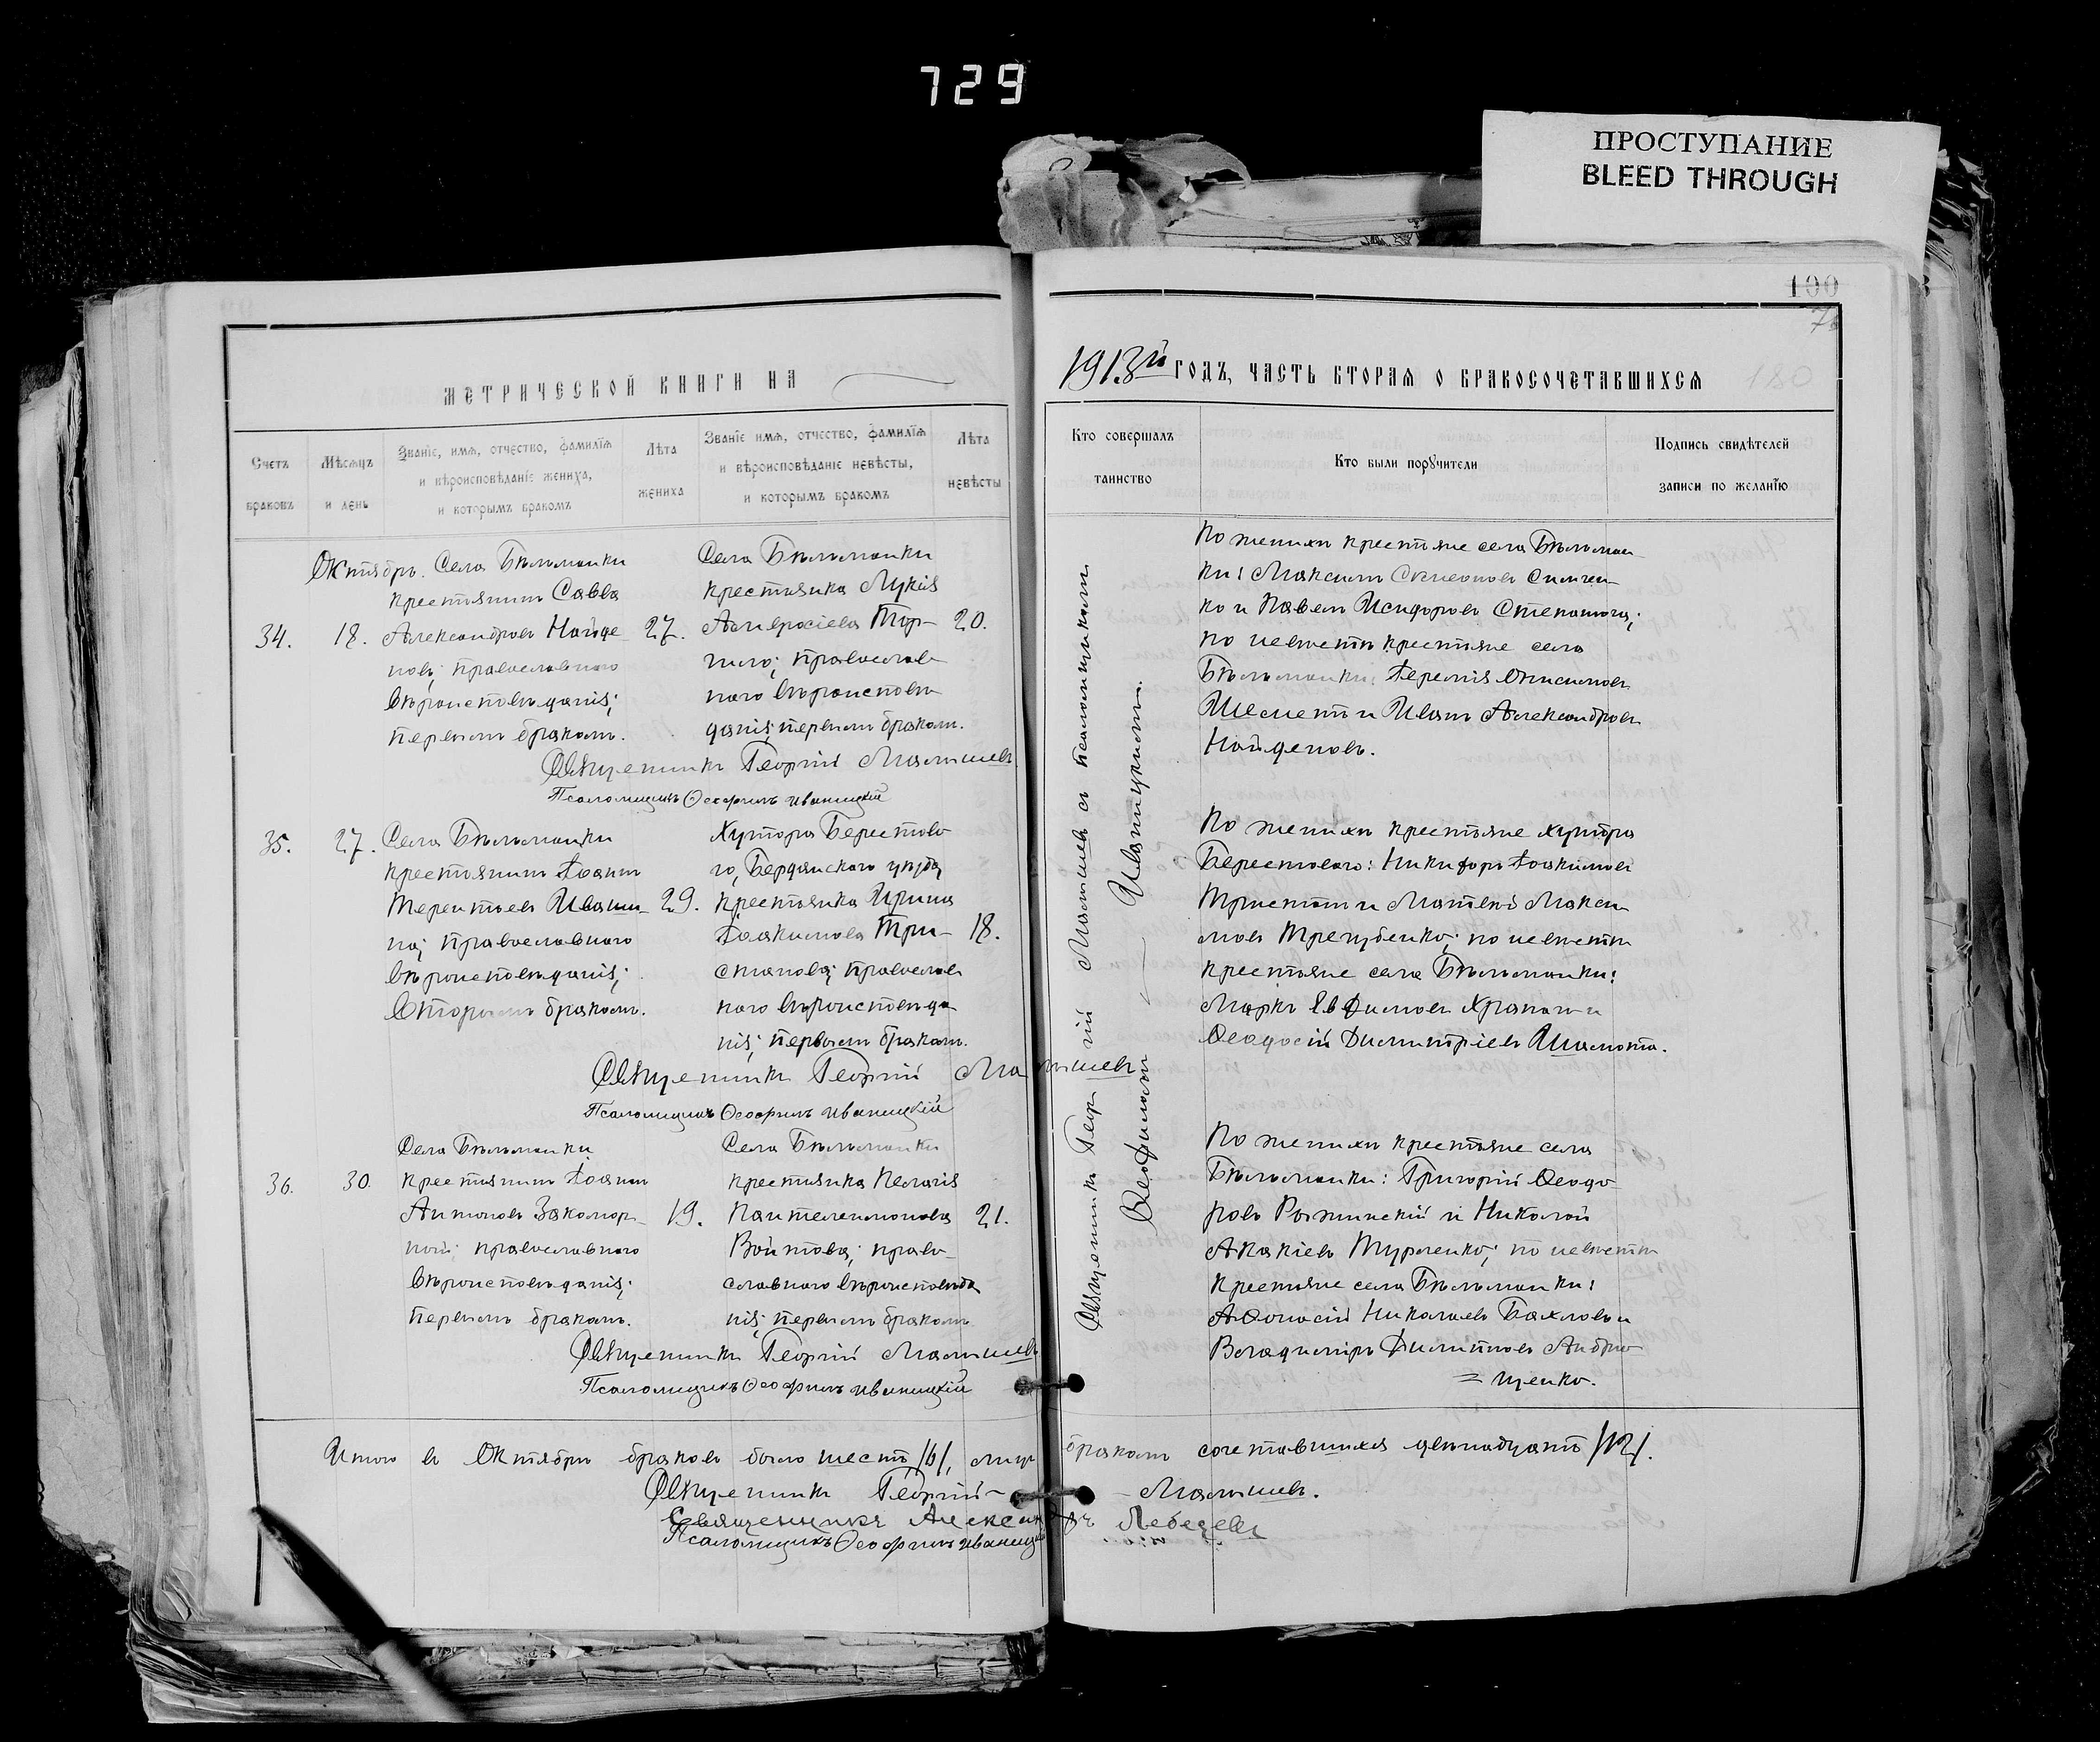 729
ПРОСТУПАНИЕ
BLEED THROUGH
100
МЕТРИЧЕСКОЙ КНИГИ НА
1913й ГОДЪ, ЧАСТЬ ВТОРАЯ О БРАКОСОЧЕТАВШИХСЯ
180
Счетъ браковъ
Мѣсяцъ и день
Званіе, имя, отчество, фамилія
и вѣроисповѣданіе жениха,
и которымъ бракомъ
Лѣта жениха
Званіе имя, отчество, фамилія
и вѣроисповѣданіе невѣсты,
и которымъ бракомъ
Лѣта невѣсты
Кто совершалъ таинство
Кто были поручители
Подпись свидѣтелей
записи по желанію
Октябрь.
34.
18.
Села Бѣльманки
крестьянинъ Савва
Александровъ Найде-
новъ; православнаго
вѣроисповѣданія;
первымъ бракомъ.
27.
Села Бѣльманки
крестьянка Лукія
Амвросіева
православ-
наго вѣроисповѣ-
данія; первымъ бракомъ.
20.
Священникъ Георгій Малышевъ
Псаломщикъ Ѳеофилъ Иваницкій
По женихѣ крестьяне села Бѣльман-
ки: Максимъ Симеоновъ Симчен-
ко и Павелъ Исидоровъ
по невѣстѣ крестьяне села
Бѣльманки: Іеремія Онисимовъ
Шеметъ и Иванъ Александровъ
Найденовъ.
35.
27.
Села Бѣльманки
крестьянинъ Іоаннъ
Терентьевъ Иваши-
на; православнаго
вѣроисповѣданія;
вторымъ бракомъ.
29.
Хутора Берестово-
го, Бердянскаго уѣзда,
крестьянка Ирина
Іоакимова Три-
станова; православ-
наго вѣроисповѣда-
нія; первымъ бракомъ.
18.
Священникъ Георгій Малышевъ
Псаломщикъ Ѳеофилъ Иваницкій
По женихѣ крестьяне хутора
Берестового: Никифоръ Іоакимовъ
Тристанъ и Матвѣй Макси-
мовъ Трегубенко; по невѣстѣ
крестьяне села Бѣльманки:
Маркъ Евфимовъ Храпанъ и
Ѳеодосій Димитріевъ Шамота.
36.
30.
Села Бѣльманки
крестьянинъ Іоаннъ
Антоновъ Закомор-
ной; православнаго
вѣроисповѣданія;
первымъ бракомъ.
19.
Села Бѣльманки
крестьянка Пелагія
Пантелеимонова
Войтова; право-
славнаго вѣроисповѣда-
нія; первымъ бракомъ
21.
Священникъ Георгій Малышевъ
Псаломщикъ Ѳеофилъ Иваницкій
По женихѣ крестьяне села
Бѣльманки: Григорій Ѳеодо-
ровъ Рожинскій и Николай
Акакіевъ Турченко; по невѣстѣ
крестьяне села Бѣльманки:
Аѳонасій Николаевъ Бахловъ и
Владиміръ Андрю-
= щенко.
Священникъ Георгій Малышевъ съ псаломщикомъ
Ѳеофиломъ Иваницкимъ.
Итого въ Октябрѣ браковъ было шесть /6/, лицъ бракомъ сочетавшихся двѣнадцать /12/.
Священникъ Георгій Малышевъ.
Священникъ Александръ Лебедевъ
Псаломщикъ Ѳеофилъ Иваницкій